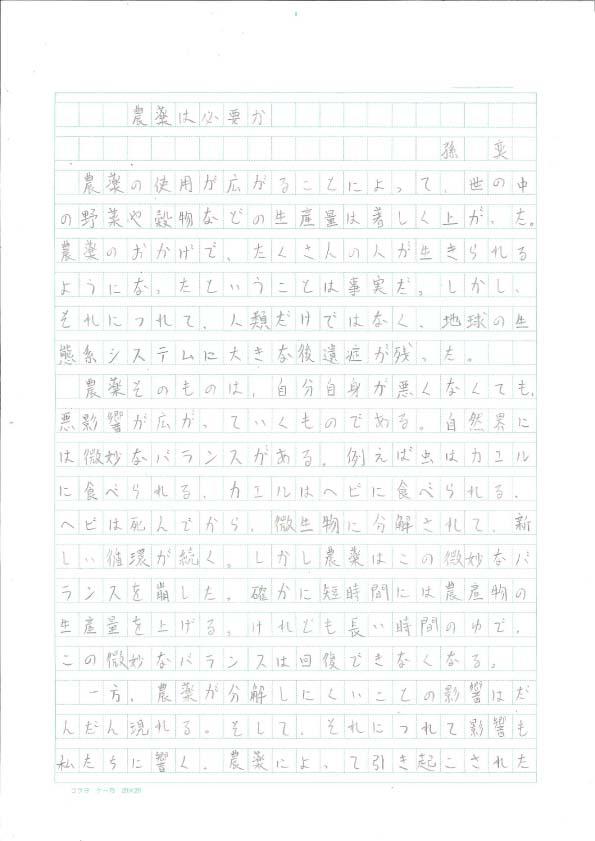 農薬は必要か
孫 奕
農薬の使用が広がることによって、世の中
の野菜や穀物などの生産量は著しく上がった。
農薬のおかげで、たくさんの人が生きられる
ようになったということは事実だ。しかし、
それにつれて、人類だけではなく、地球の生
態系システムに大きな後遺症が残った。
農薬そのものは、自分自身が悪くなくても、
悪影響が広がっていくものである。自然界に
は微妙なバランスがある。例えば虫はカエル
に食べられる、カエルはヘビに食べられる、
ヘビは死んでから、微生物に分解されて、新
しい循環が続く。しかし農薬はこの微妙なバ
ランスを崩した。確かに短時間には農産物の
生産量を上げる。けれども長い時間の中で、
この微妙なバランスは回復できなくなる。
一方、農薬が分解しにくいことの影響はだ
んだん現れる。そして、それにつれて影響も
私たちに響く、農薬によって引き起こされた
コクヨ ケー70 20×20